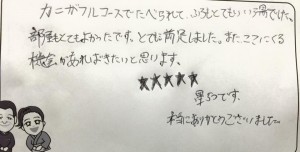 カニがフルコースでたべられて、ふろもとてもいい湯でした。
部屋もとてもよかったです。とても満足しました。またここにくる
機会があればきたいと思います。
★★★★★
星5つです。
本当にありがとうございました。